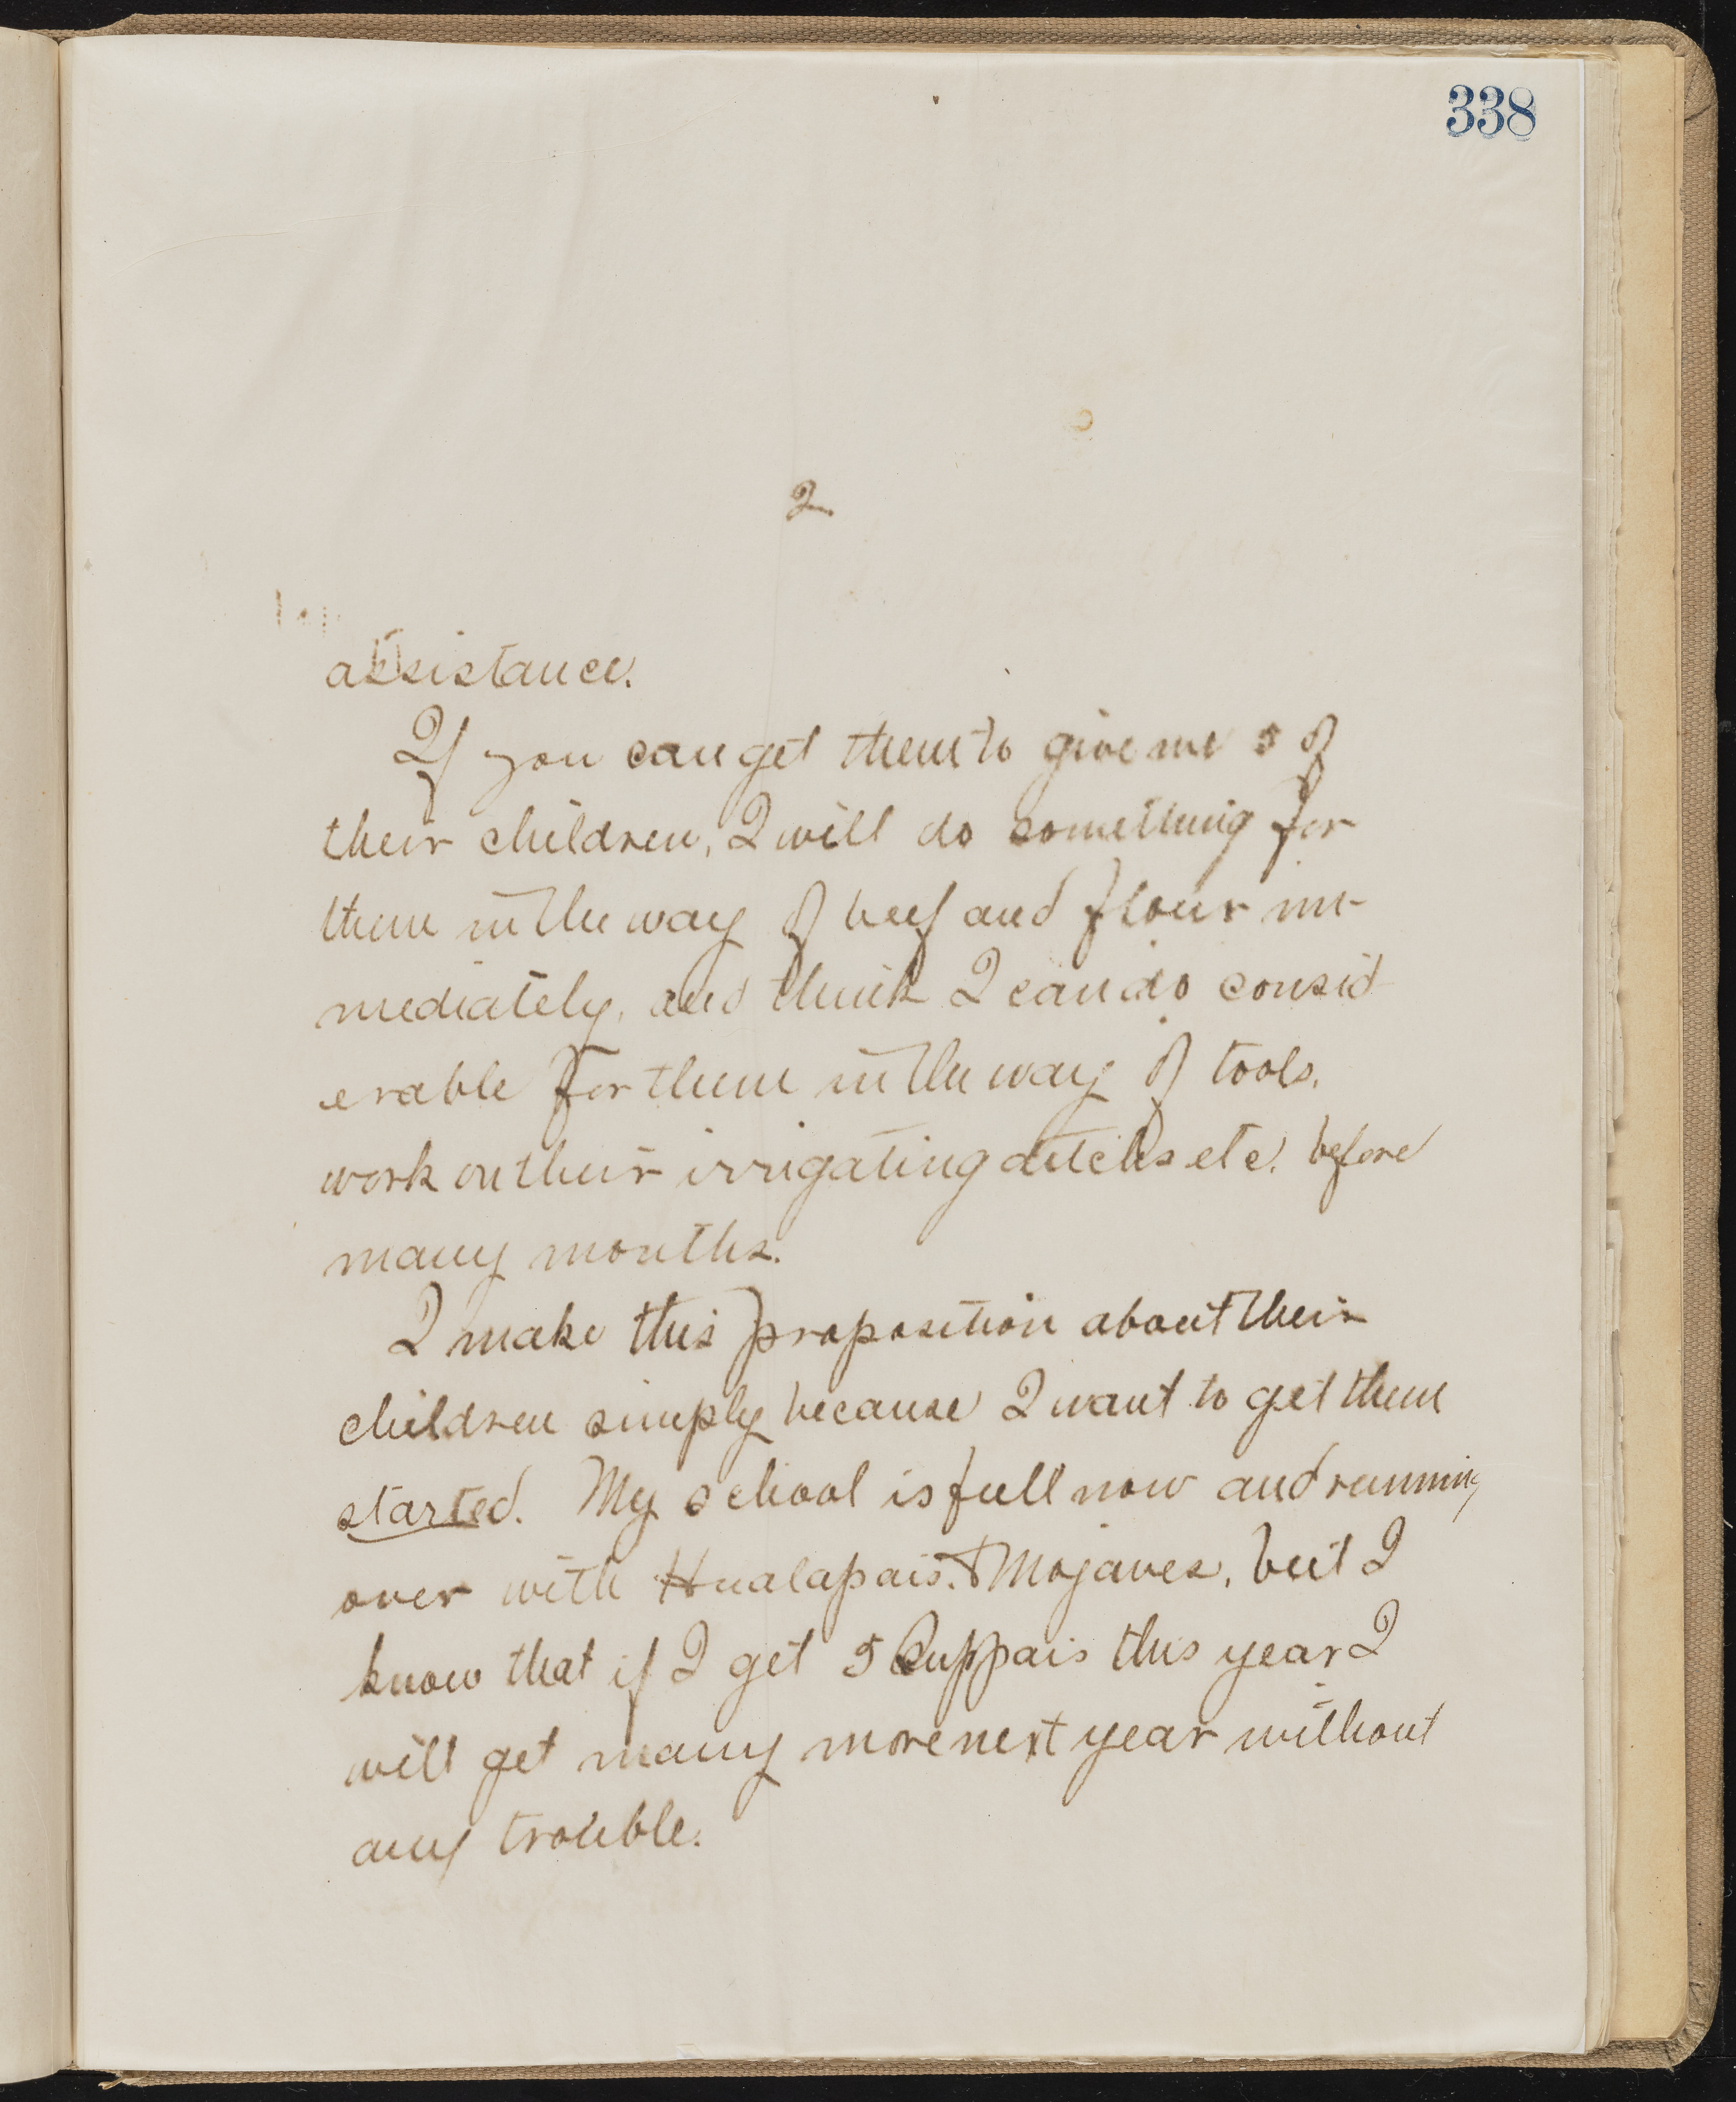 338
2
assistance.
If you can get them to give me 5 of
their children, I will do something for
them in the way of beef and flour im-
mediately, and think I can do consid
erable for them in the way of tools,
work on their irrigating ditches etc. before
many months.
I make this proposition about their
children simply because I want to get them
started. My school is full now and running
over with Hualapais & Mojaves, but I
know that if I get 5 Suppais this year I
will get many more next year without
any trouble.